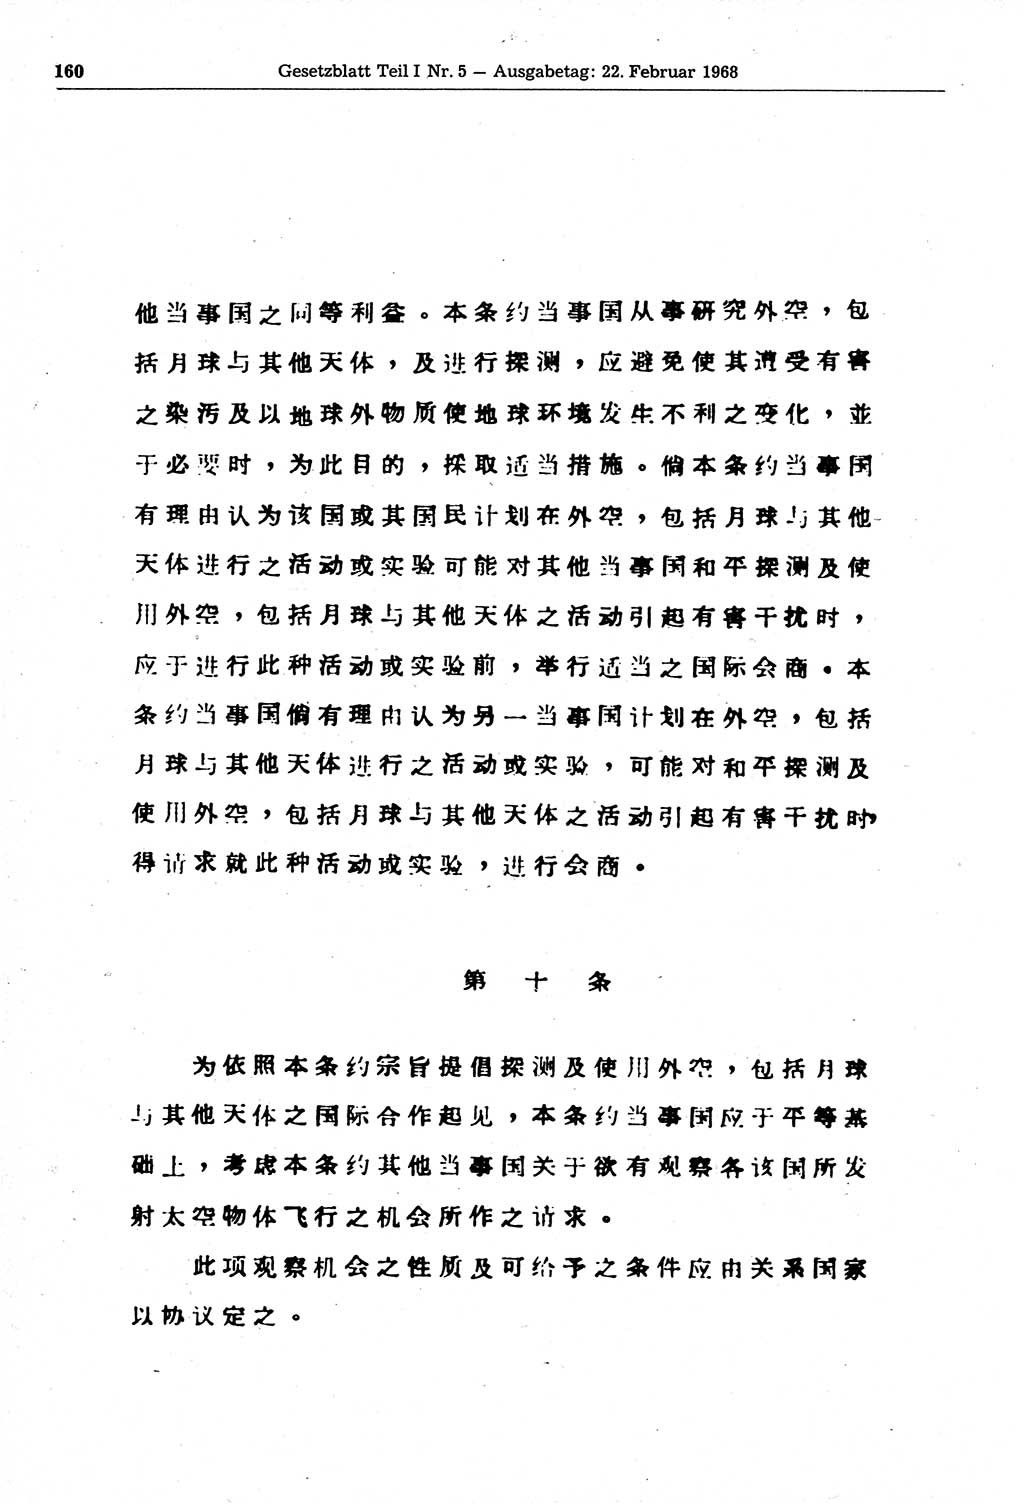 160 Gesetzblatt Teil I Nr. 5 — Ausgabetag: 22. Februar 1968
他当事国之同等利益。本条约当事国从事研究外空，包
括月球与其他天体，及进行探测，应避免使其遭受有害
之染污及以地球外物质使地球环境发生不利之变化，並
于必要时，为此目的，採取适当措施。倘本条约当事国
有理由认为该国或其国民计划在外空，包括月球与其他
天体进行之活动或实验可能对其他当事国和平探测及使
用外空，包括月球与其他天体之活动引起有害干扰时，
应于进行此种活动或实验前，举行适当之国际会商。本
条约当事国倘有理由认为另一当事国计划在外空，包括
月球与其他天体进行之活动或实验，可能对和平探测及
使用外空，包括月球与其他天体之活动引起有害干扰时，
得请求就此种活动或实验，进行会商。
第十条
为依照本条约宗旨提倡探测及使用外空，包括月球
与其他天体之国际合作起见，本条约当事国应于平等基
础上，考虑本条约其他当事国关于欲有观察各该国所发
射太空物体飞行之机会所作之请求。
此项观察机会之性质及可给予之条件应由关系国家
以协议定之。